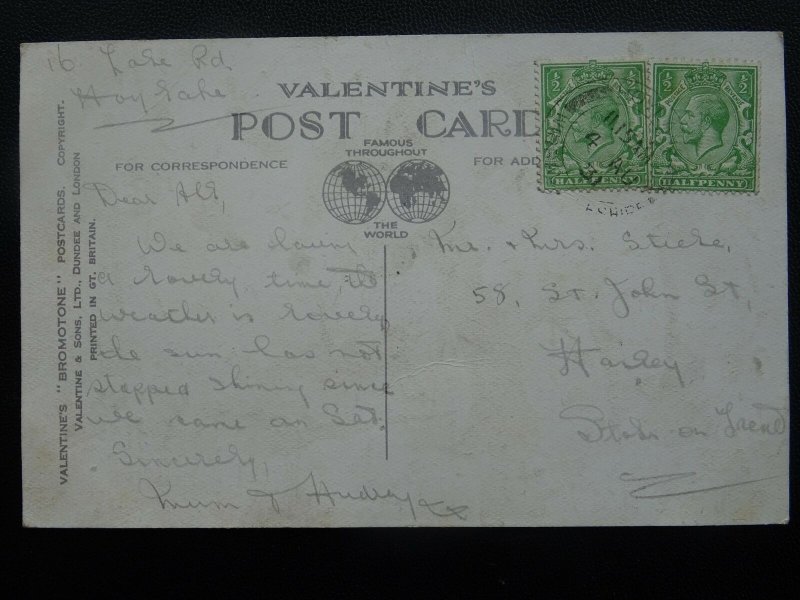 16 Lake Rd
Hoylake
VALENTINE'S
POST CARD
FAMOUS
THROUGHOUT
THE
WORLD
FOR CORRESPONDENCE
FOR ADD
VALENTINE'S "BROMOTONE" POSTCARDS. COPYRIGHT.
VALENTINE & SONS, LTD., DUNDEE AND LONDON
PRINTED IN GT. BRITAIN.
½ ½
HALFPENNY
½ ½
HALFPENNY
4 AUG
Dear All,
We are having
a lovely time, the
weather is lovely
the sun has not
stopped shining since
we came on Sat.
Sincerely,
Mum & Audrey xx
Mr. & Mrs.
58, St. John St,
Hanley
Stoke-on-Trent